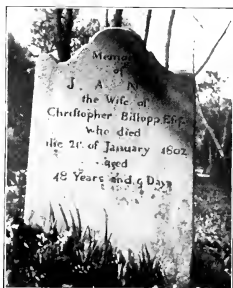 Memory
of
JANE
the Wife of
Christopher Billopp Esqr.
who died
the 2d. of January 1802
aged
48 Years and 9 Days